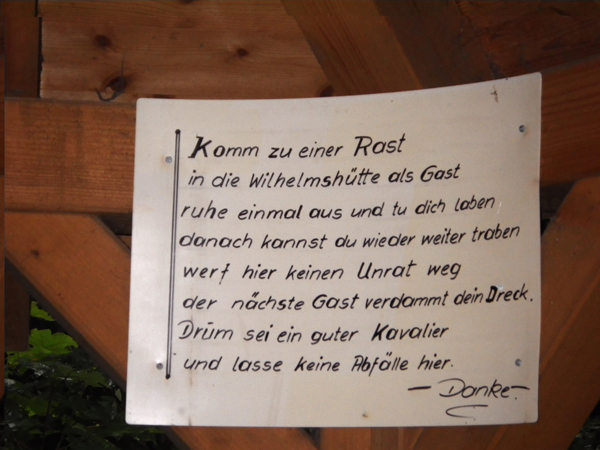 Komm zu einer Rast
in die Wilhelmshütte als Gast
ruhe einmal aus und tu dich laben
danach kannst du wieder weiter traben
werf hier keinen Unrat weg
der nächste Gast verdammt dein Dreck.
Drüm sei ein guter Kavalier
und lasse keine Abfälle hier.
- Danke -